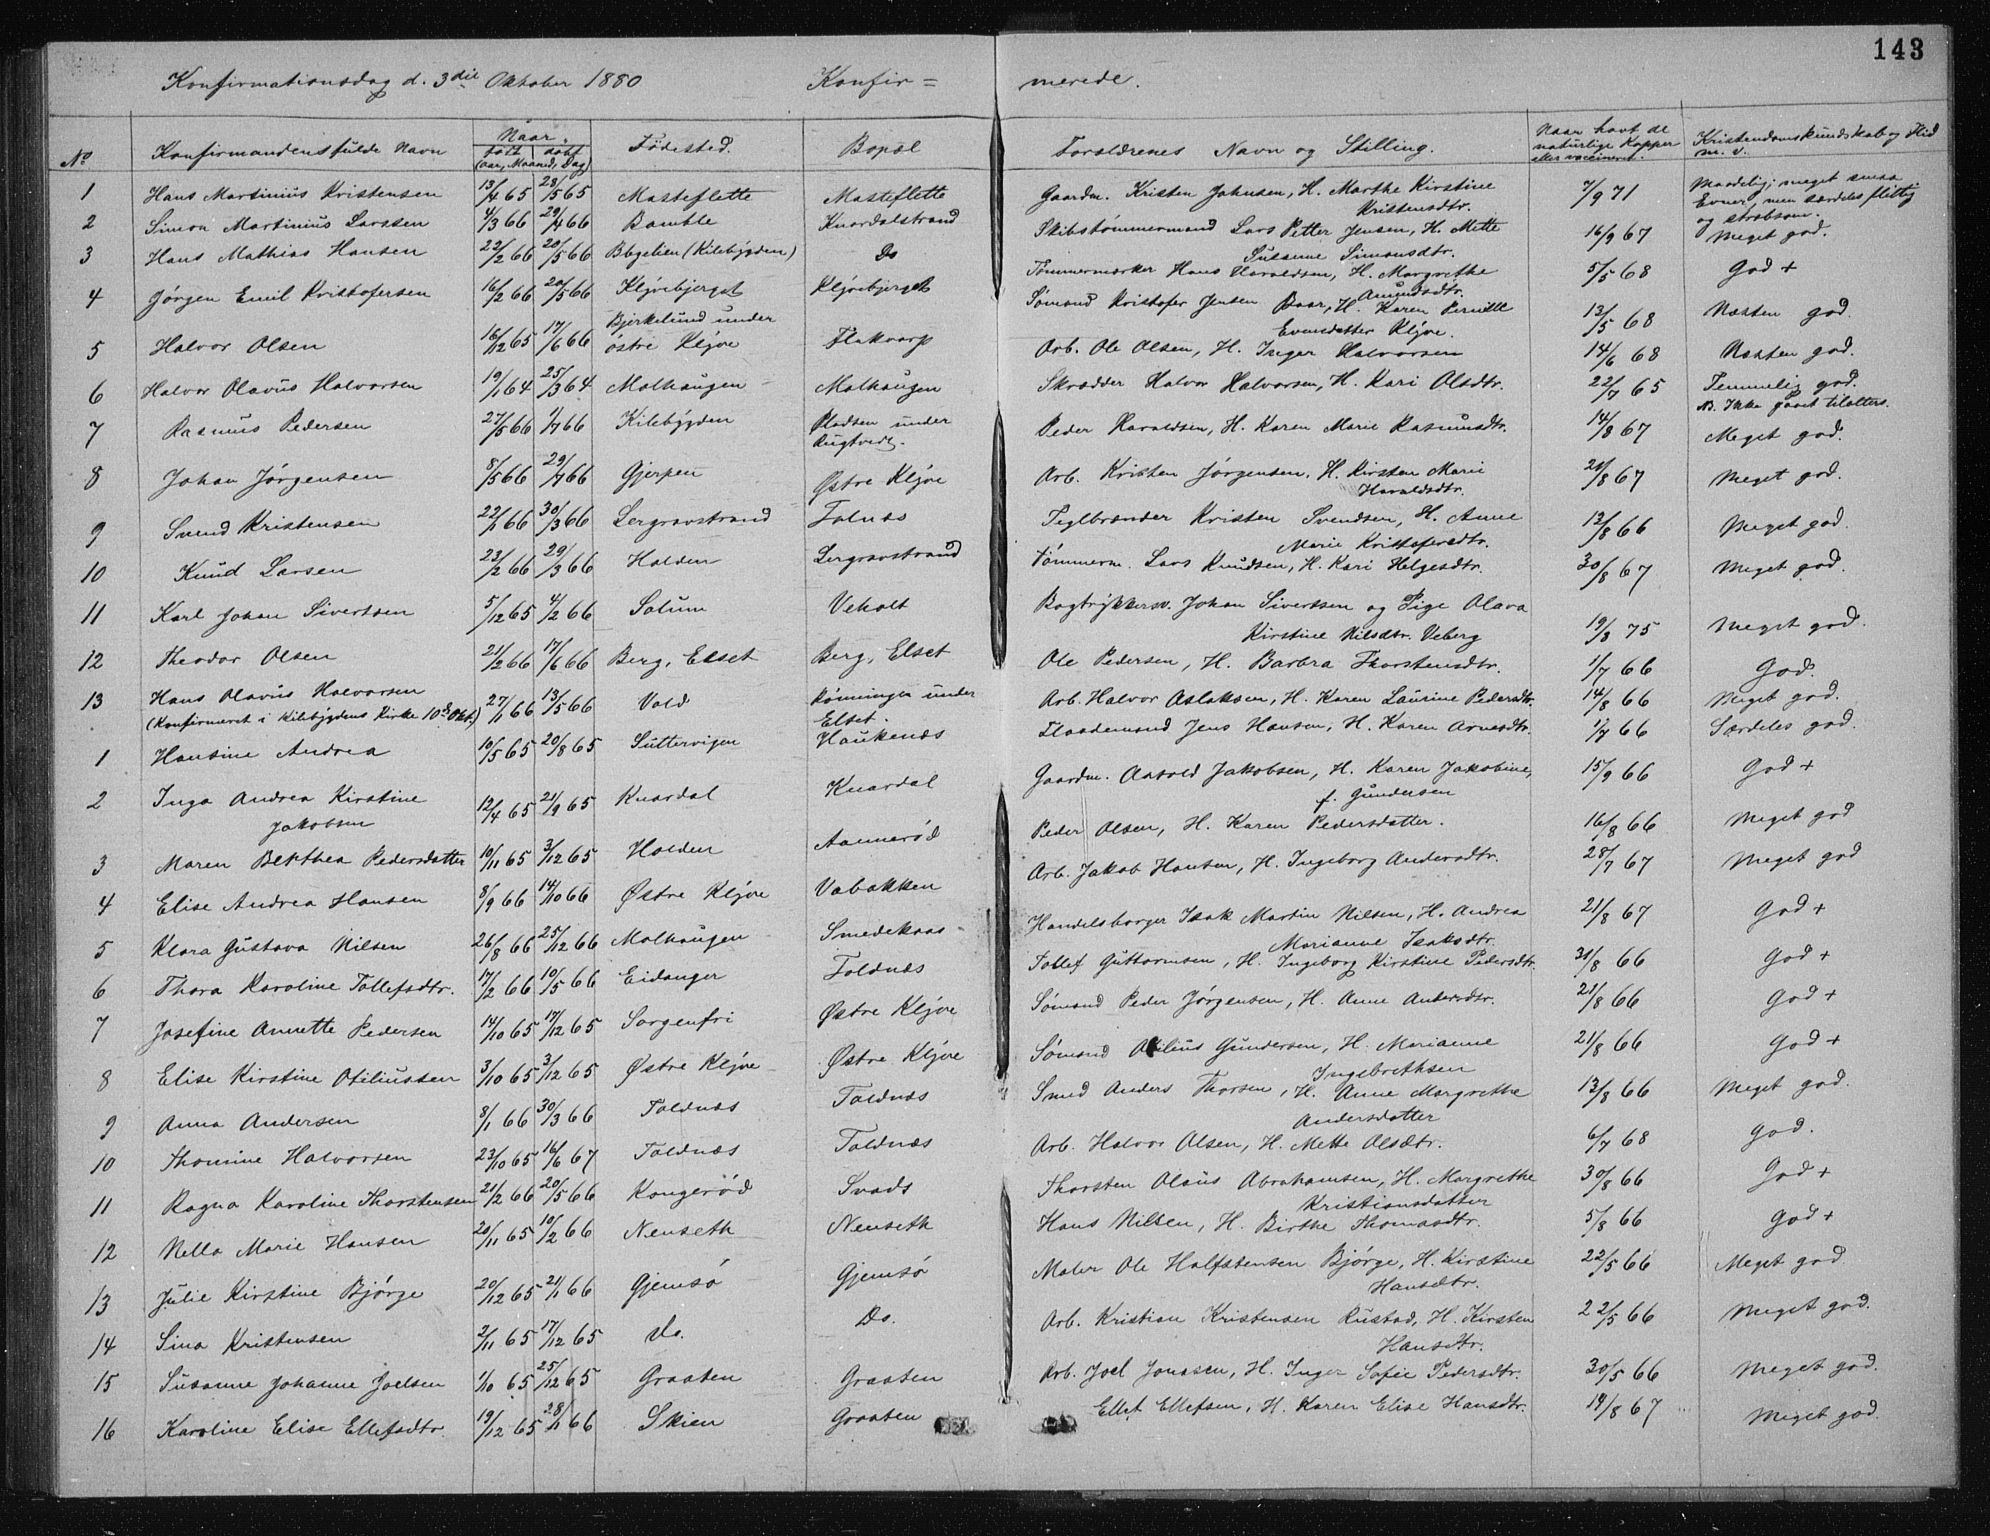 143
Konfirmationsdag d. 3die Oktober 1880 Konfir= merede.
No Konfirmandens fulde Navn Naar født døbt (Aar, Maaned, Dag) Fødested. Bopæl Forældrenes Navn og Stilling. Naar havt de naturlige Kopper eller vaccineret. Kristendomskundskab og Flid m. v.
1 Hans Martinius Kristensen 13/4 65 28/5 65 Masteflette Masteflette Gaardm. Kristen Johnsen, H. Marthe Kirstine Kristensdtr. 7/9 71 Maadelig; meget smaa Evner, men særdeles flittig og stræbsom.
2 Simon Martinius Larssen 4/3 66 29/4 66 Bamble Knardalstrand Skibstømmermand Lars Petter Jensen, H. Mette Susanne Simonsdtr. 16/9 67 Meget god.
3 Hans Mathias Hansen 22/2 66 20/5 66 Bøgelien (Kilebygden) Do Tømmermærker Hans Haraldsen, H. Margrethe Amundsdtr. 5/5 68 God +
4 Jørgen Emil Kristofersen 16/2 66 20/5 66 Kljvebjerget Kljvebjerget Sømand Kristofer Jensen Baar, H. Karen Pernille Evensdatter Kljve. 12/5 68 Næsten god.
5 Halvor Olsen 16/12 65 17/6 66 Bjerkelund under østre Kljve Flakvarp Arb. Ole Olsen, H. Inger Halvorsen 14/6 68 Næsten god.
6 Halvor Olavus Halvorsen 19/1 64 25/3 64 Molhaugen Molhaugen Skrædder Halvor Halvorsen, H. Kari Olsdtr. 22/7 65 Temmelig god. NB. Ikke gaaet tilalters.
7 Rasmus Pedersen 27/5 66 1/7 66 Kilebygden Pladsen under Rugtvedt. Peder Haraldsen, H. Karen Marie Rasmusdtr. 14/8 67 Meget god.
8 Johan Jørgensen 8/5 66 29/7 66 Gjerpen Østre Kljve Arb. Kristen Jørgensen, H. Kirsten Marie Haraldsdtr. 21/8 67 Meget god.
9 Svend Kristensen 22/1 66 30/3 66 Lergravstrand Folnæs Teglbrænder Kristen Svendsen, H. Anne Marie Kristofersdtr. 12/8 66 Meget god.
10 Knud Larsen 23/2 66 29/3 66 Holden Lergravstrand Tømmerm. Lars Knudsen, H. Kari Helgesdtr. 30/8 67 Meget god.
11 Karl Johan Sivertsen 5/12 65 4/2 66 Solum Veholt Bogtrykkersv. Johan Sivertsen og Pige Olava Kirstine Nilsdtr. Veberg 19/3 75 Meget god.
12 Theodor Olsen 21/2 66 17/6 66 Berg, Elset Berg, Elset Ole Pedersen, H. Barbra Thorstensdtr. 1/7 66 God.
13 Hans Olavus Halvorsen 27/1 66 13/5 66 Vold Rønningen under Elset. Arb. Halvor Aslaksen, H. Karen Laurine Pedersdtr. 14/8 66 Meget god.
(Konfirmeret i Kilebygdens Kirke 10de Okt.)
1 Hansine Andrea 10/5 65 20/8 65 Suttervigen Haukenæs Flaademand Jens Hansen, H. Karen Arnesdtr. 1/7 66 Særdeles god.
2 Inga Andrea Kirstine Jakobsen 12/4 65 21/9 65 Knardal Knardal Gaardm. Aasold Jakobsen, H. Karen Jakobine, f. Gundersen 15/9 66 God +
3 Maren Berthea Pedersdatter 10/11 65 3/12 65 Holden Aannerød Peder Olsen, H. Karen Pedersdatter. 16/8 66 Meget god
4 Elise Andrea Hansen 8/9 66 14/10 66 Østre Kljve Vabakken Arb. Jakob Hansen, H. Ingeborg Andersdtr. 28/7 67 Meget god
5 Klara Gustava Nilsen 26/8 66 25/12 66 Molhaugen Smedekaas Handelsborger Isak Martin Nilsen, H. Andrea Marianne Isaksdtr. 21/8 67 God +
6 Thora Karoline Tollefsdtr. 17/2 66 10/5 66 Eidanger Foldnæs Tollef Guttormsen, H. Ingeborg Kirstine Pedersdtr. 31/8 66 God +
7 Josefine Annette Pedersen 14/10 65 17/12 65 Sorgenfri Østre Kljve Sømand Peder Jørgensen, H. Anne Andersdtr. 21/8 66 God +
8 Elise Kirstine Otiliussen 3/10 65 3/12 65 Østre Kljve Østre Kljve Sømand Otilius Gundersen, H. Marianne Ingebrethsen 21/8 66 God +
9 Anna Andersen 8/1 66 30/3 66 Foldnæs Foldnæs Smed Anders Thorsen, H. Anne Margrethe Andersdatter 13/8 66 Meget god.
10 Thomine Halvorsen 23/10 65 16/6 67 Foldnæs Foldnæs Arb. Halvor Olsen, H. Mette Olsdtr. 6/7 68 God.
11 Ragna Karoline Thorstensen 21/2 66 20/5 66 Kongerød Svads Thorsten Olaus Abrahamsen, H. Margrethe Kristiansdatter 30/8 66 God +
12 Nella Marie Hansen 20/11 65 10/2 66 Nenseth Nenseth Hans Nilsen, H. Birthe Thomasdtr. 5/8 66 God +
13 Julie Kirstine Bjørge 20/12 65 21/1 66 Gjemsø Gjemsø Maler Ole Halfstensen Bjørge, H. Kirstine Hansdtr. 22/5 66 Meget god
14 Sina Kristensen 2/11 65 17/12 65 Do. Do. Arb. Kristian Kristensen Rustad, H. Kirsten Hansdtr. 22/5 66 Meget god.
15 Susanne Johanne Joelsen 1/10 65 25/12 65 Graaten Graaten Arb. Joel Jonssen, H. Inger Sofie Pedersdtr. 30/5 66 Meget god.
16 Karoline Elise Ellefsdtr 19/12 65 28/1 66 Skien Graaten Ellef Ellefsen, H. Karen Elise Hansdtr. 19/8 67 Meget god.